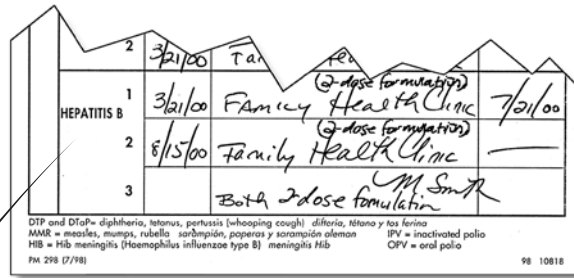 2 3/21/00
(2-dose formulation)
1 3/21/00 Family Health Clinic 7/21/00
HEPATITIS B
(2-dose formulation)
2 8/15/00 Family Health Clinic —
M Smith
3 Both 2-dose fomulation
DTP and DTaP= diphtheria, tetanus, pertussis (whooping cough) difteria, tétano y tos ferina
MMR = measles, mumps, rubella sarampión, paperas y sarampión aleman IPV = inactivated polio
HIB = Hib meningitis (Haemophilus influenzae type B) meningitis Hib OPV = oral polio
PM 298 (7/98) 98 10818